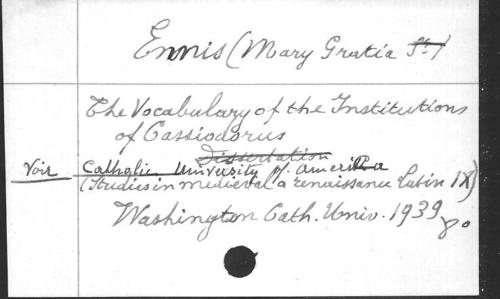 Ennis (Mary Gratia Sr)
The Vocabulary of the Institutions
of Cassiodorus
Dissertation
Voir Catholic University of America
(Studies in medieval a renaissance Latin IX)
Washington Cath. Univ. 1939
8o